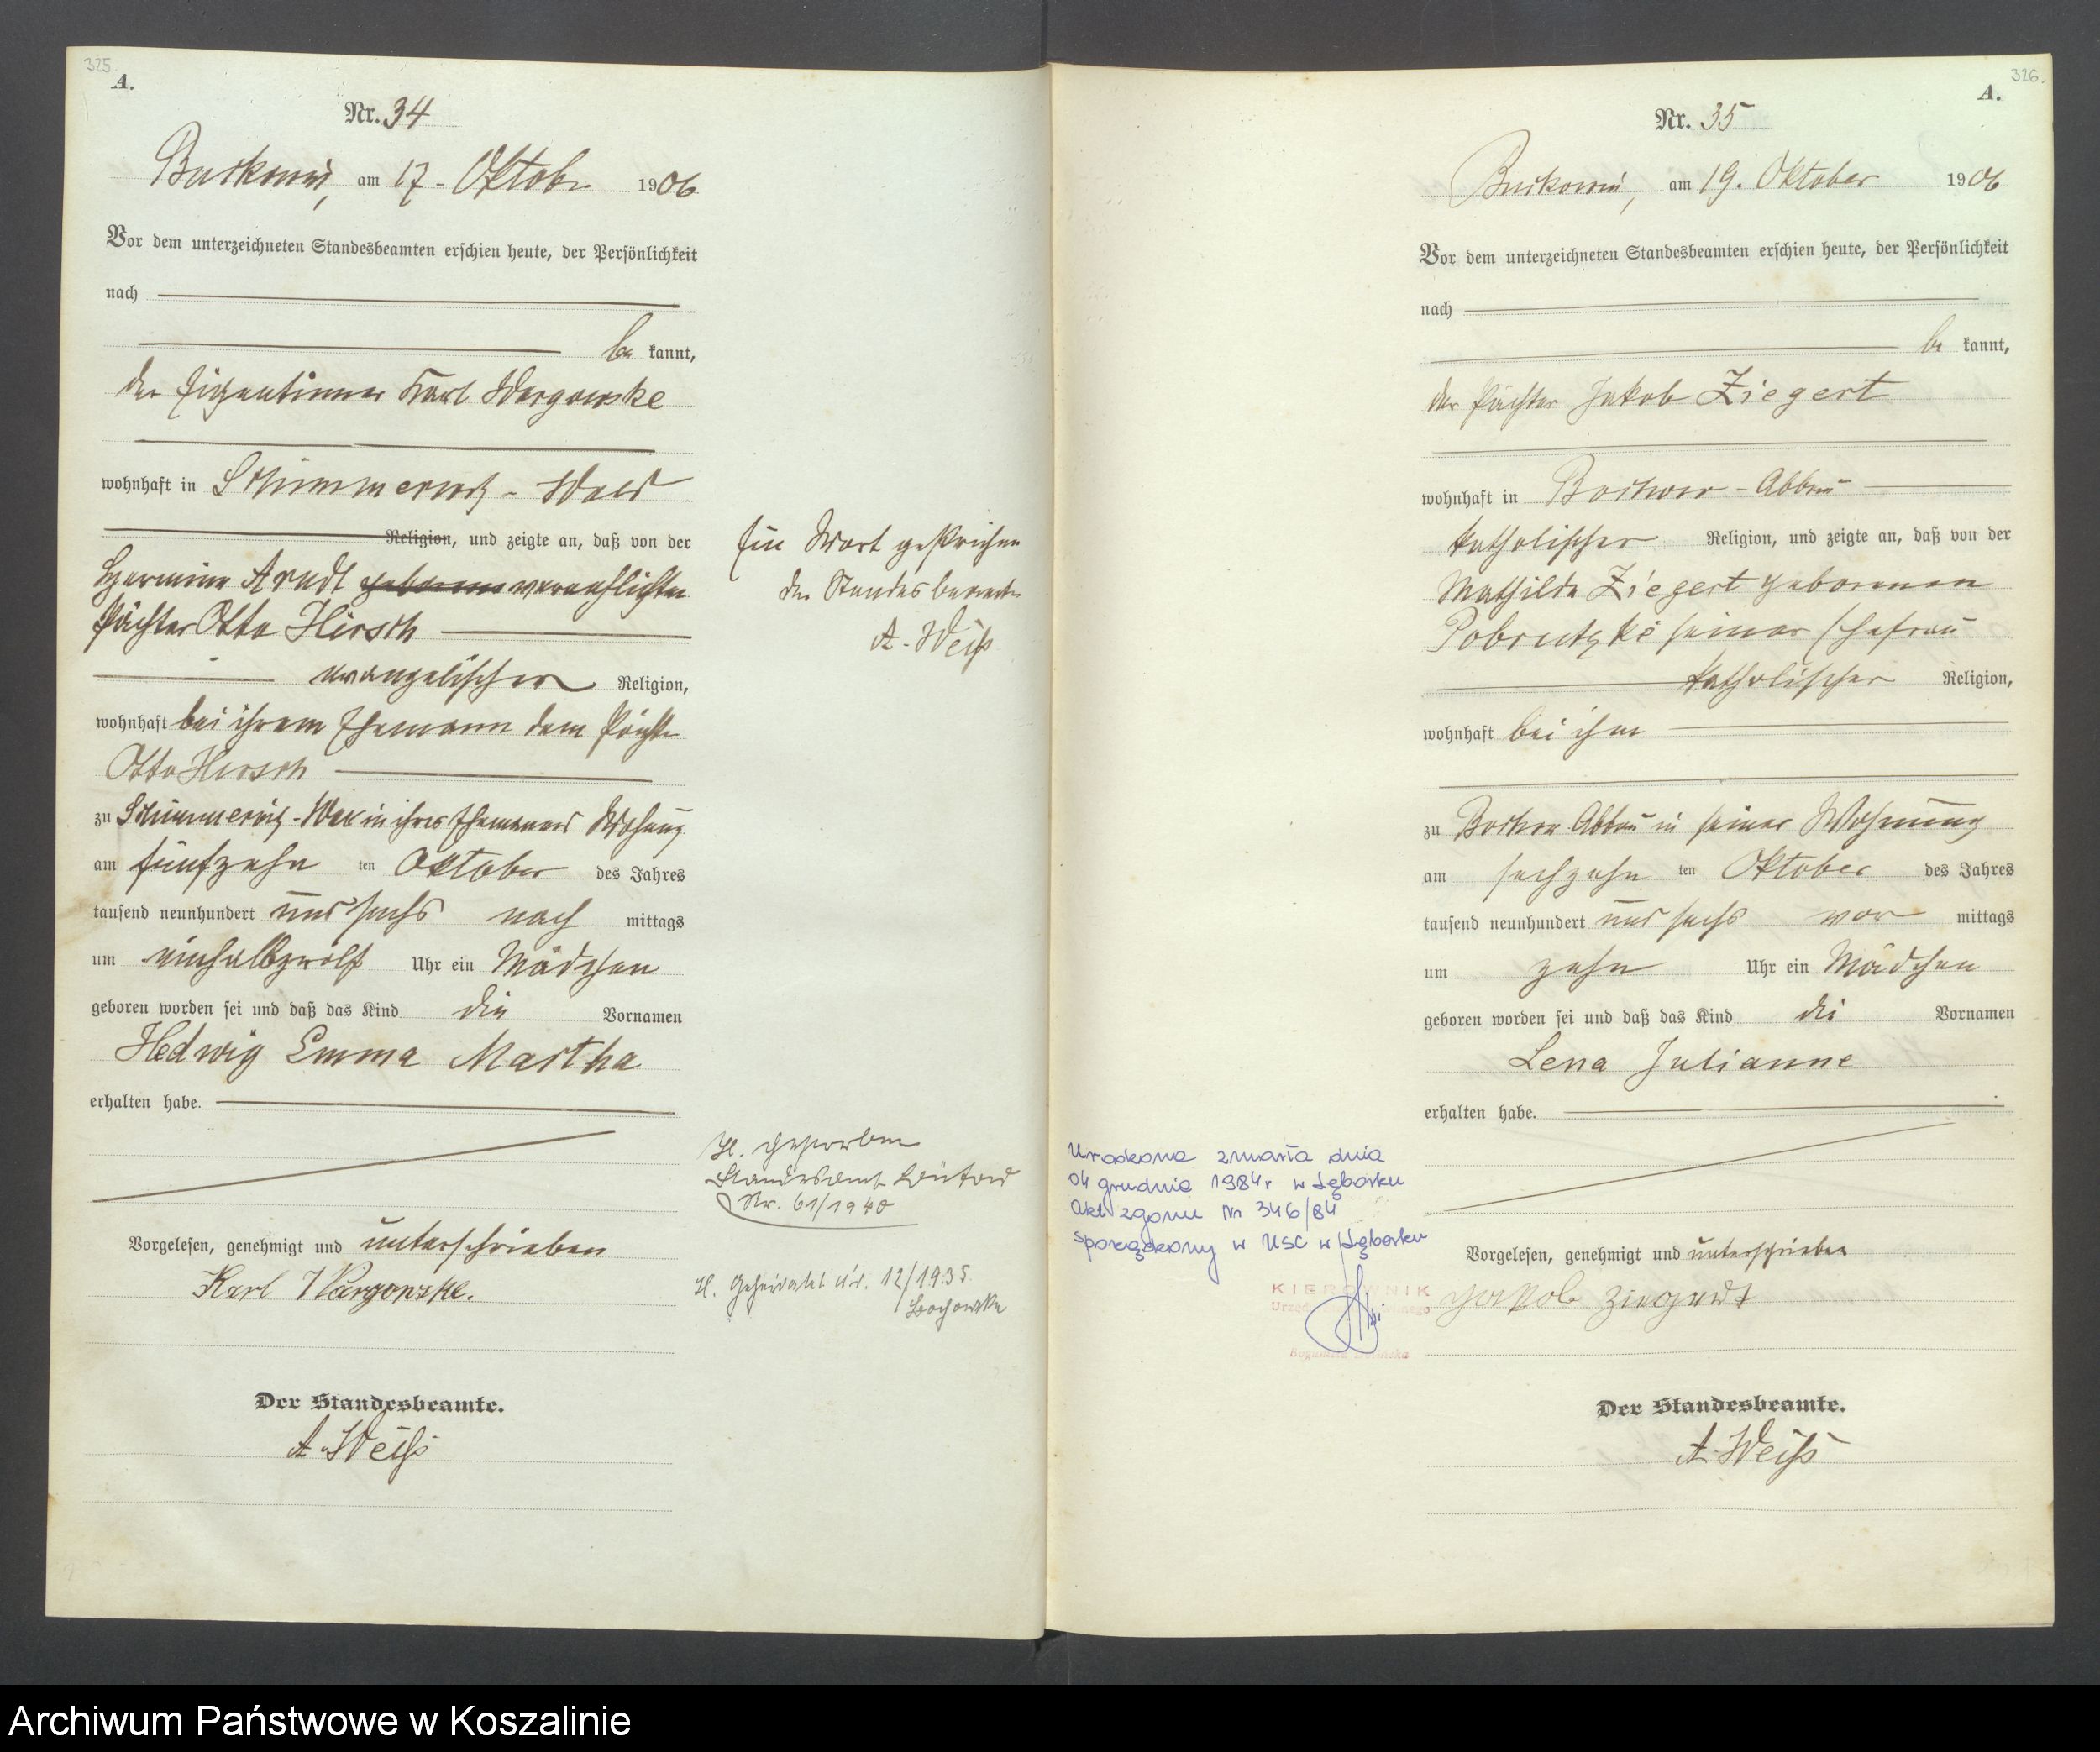 325.
A.
Nr. 34
Buckowin, am 17. Oktober 1906
Vor dem unterzeichneten Standesbeamten erschien heute, der Persönlichkeit
nach
be kannt,
der Eigentümer Karl Wargowske
wohnhaft in Schimmerwitz - Wald
Religion, und zeigte an, daß von der
Hermine Arndt geborene verehlichte
Pächter Otto Hirsch
evangelischer Religion,
wohnhaft bei ihrem Ehemann dem Pächter
Otto Hirsch
zu Schimmerwitz-Wald in ihres Ehemannes Wohnung
am fünfzehn ten Oktober des Jahres
tausend neunhundert und sechs nach mittags
um einhalbzwölf Uhr ein Mädchen
geboren worden sei und daß das Kind die Vornamen
Hedwig Emma Martha
erhalten habe.
Vorgelesen, genehmigt und unterschrieben
Karl Wargowske.
Der Standesbeamte.
A. Weiß
Ein Wort gestrichen
Der Standesbeamte
A. Weiß
H. Gestorben
Standesamt Bütow
Nr. 61/1940
H. Geheiratet Nr. 12/1935
326.
A.
Nr. 35
Buckowin, am 19. Oktober 1906
Vor dem unterzeichneten Standesbeamten erschien heute, der Persönlichkeit
nach
be kannt,
der Pächter Jakob Ziegert
wohnhaft in Bochow - Abbau
katholischer Religion, und zeigte an, daß von der
Mathilde Ziegert geborenen
Pobrutzki seiner Ehefrau
katholischer Religion,
wohnhaft bei ihm
zu Bochow Abbau in seiner Wohnung
am sechzehn ten Oktober des Jahres
tausend neunhundert und sechs vor mittags
um zehn Uhr ein Mädchen
geboren worden sei und daß das Kind die Vornamen
Lena Julianne
erhalten habe.
Vorgelesen, genehmigt und unterschrieben
Jakob Ziegert
Der Standesbeamte.
A. Weiß
Urodzona zmarła dnia
04 grudnia 1984 r w Lęborku
Akt zgonu Nr 346/84
sporządzony w USC w Lęborku
KIEROWNIK
Archiwum Państwowe w Koszalinie